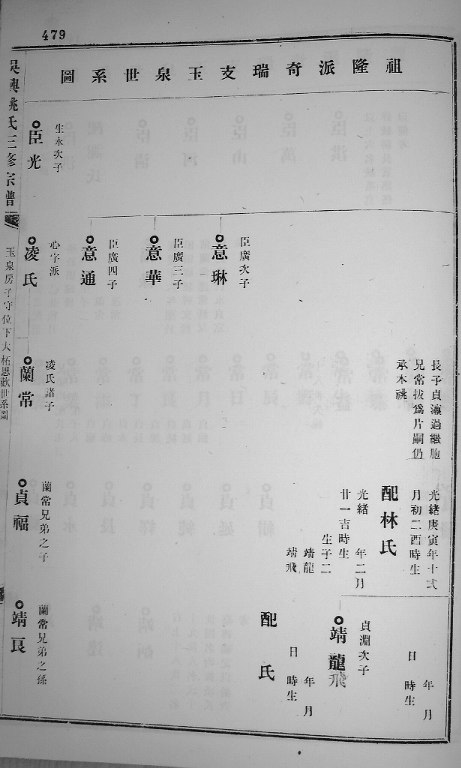 479
祖隆派奇瑞支玉泉世系圖
長子貞瀛過繼胞
兄常拔爲片嗣仍
承木祧
光緒庚寅年十弍
月初二酉時生
配林氏
光緒 年二月
廿一吉時生
生子二
靖龍
靖飛
年 月
日 時生
貞淵次子
靖龍飛
年 月
日 時生
配 氏
臣廣次子
意琳
臣廣三子
意華
臣廣四子
意通
生永次子
臣光
心字派
凌氏
凌氏諸子
蘭常
蘭常兄弟之子
貞福
蘭常兄弟之孫
靖良
吳興姚氏三修宗譜
玉泉房子守位下大柘恩歡世系圖